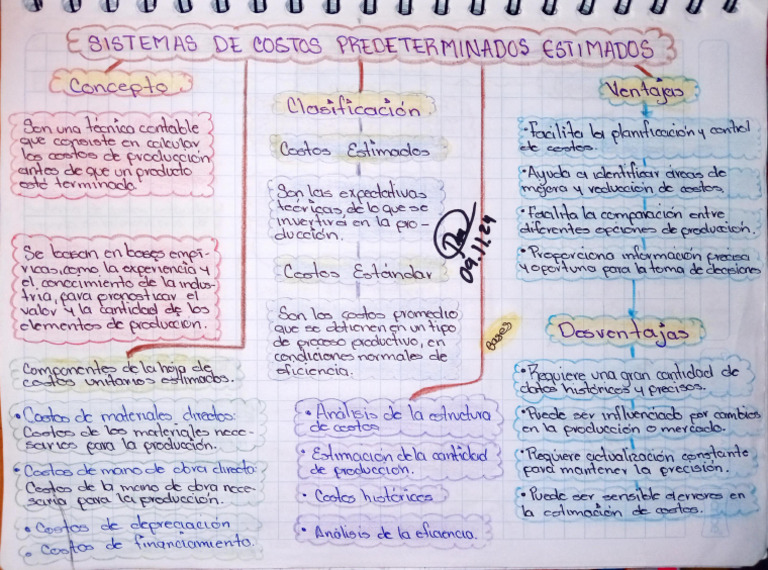 SISTEMAS DE COSTOS PREDETERMINADOS ESTIMADOS
Concepto
Son una técnica contable
que consiste en calcular
los costos de producción
antes de que un producto
esté terminado.
Se basan en bases empí-
ricas, como la experiencia y
el conocimiento de la indus-
tria, para pronosticar el
valor y la cantidad de los
elementos de producción.
Componentes de la hoja de
costos unitarios estimados.
• Costos de materiales directos:
Costos de los materiales nece-
sarios para la producción.
• Costos de mano de obra directa:
Costos de la mano de obra nece-
saria para la producción.
• Costos de depreciación
• Costos de financiamiento.
Clasificación
Costos Estimados
Son las expectativas
teóricas, de lo que se
invertirá en la pro-
ducción.
Costos Estándar
Son los costos promedio
que se obtienen en un tipo
de proceso productivo, en
condiciones normales de
eficiencia.
09.11.24
Bases
• Análisis de la estructura
de costos
• Estimación de la cantidad
de producción.
• Costos históricos
• Análisis de la eficiencia.
Ventajas
• Facilita la planificación y control
de costos.
• Ayuda a identificar áreas de
mejora y reducción de costos.
• Facilita la comparación entre
diferentes opciones de producción.
• Proporciona información precisa
y oportuna para la toma de decisiones
Desventajas
• Requiere una gran cantidad de
datos históricos y precisos.
• Puede ser influenciado por cambios
en la producción o mercado.
• Requiere actualización constante
para mantener la precisión.
• Puede ser sensible a errores en
la estimación de costos.